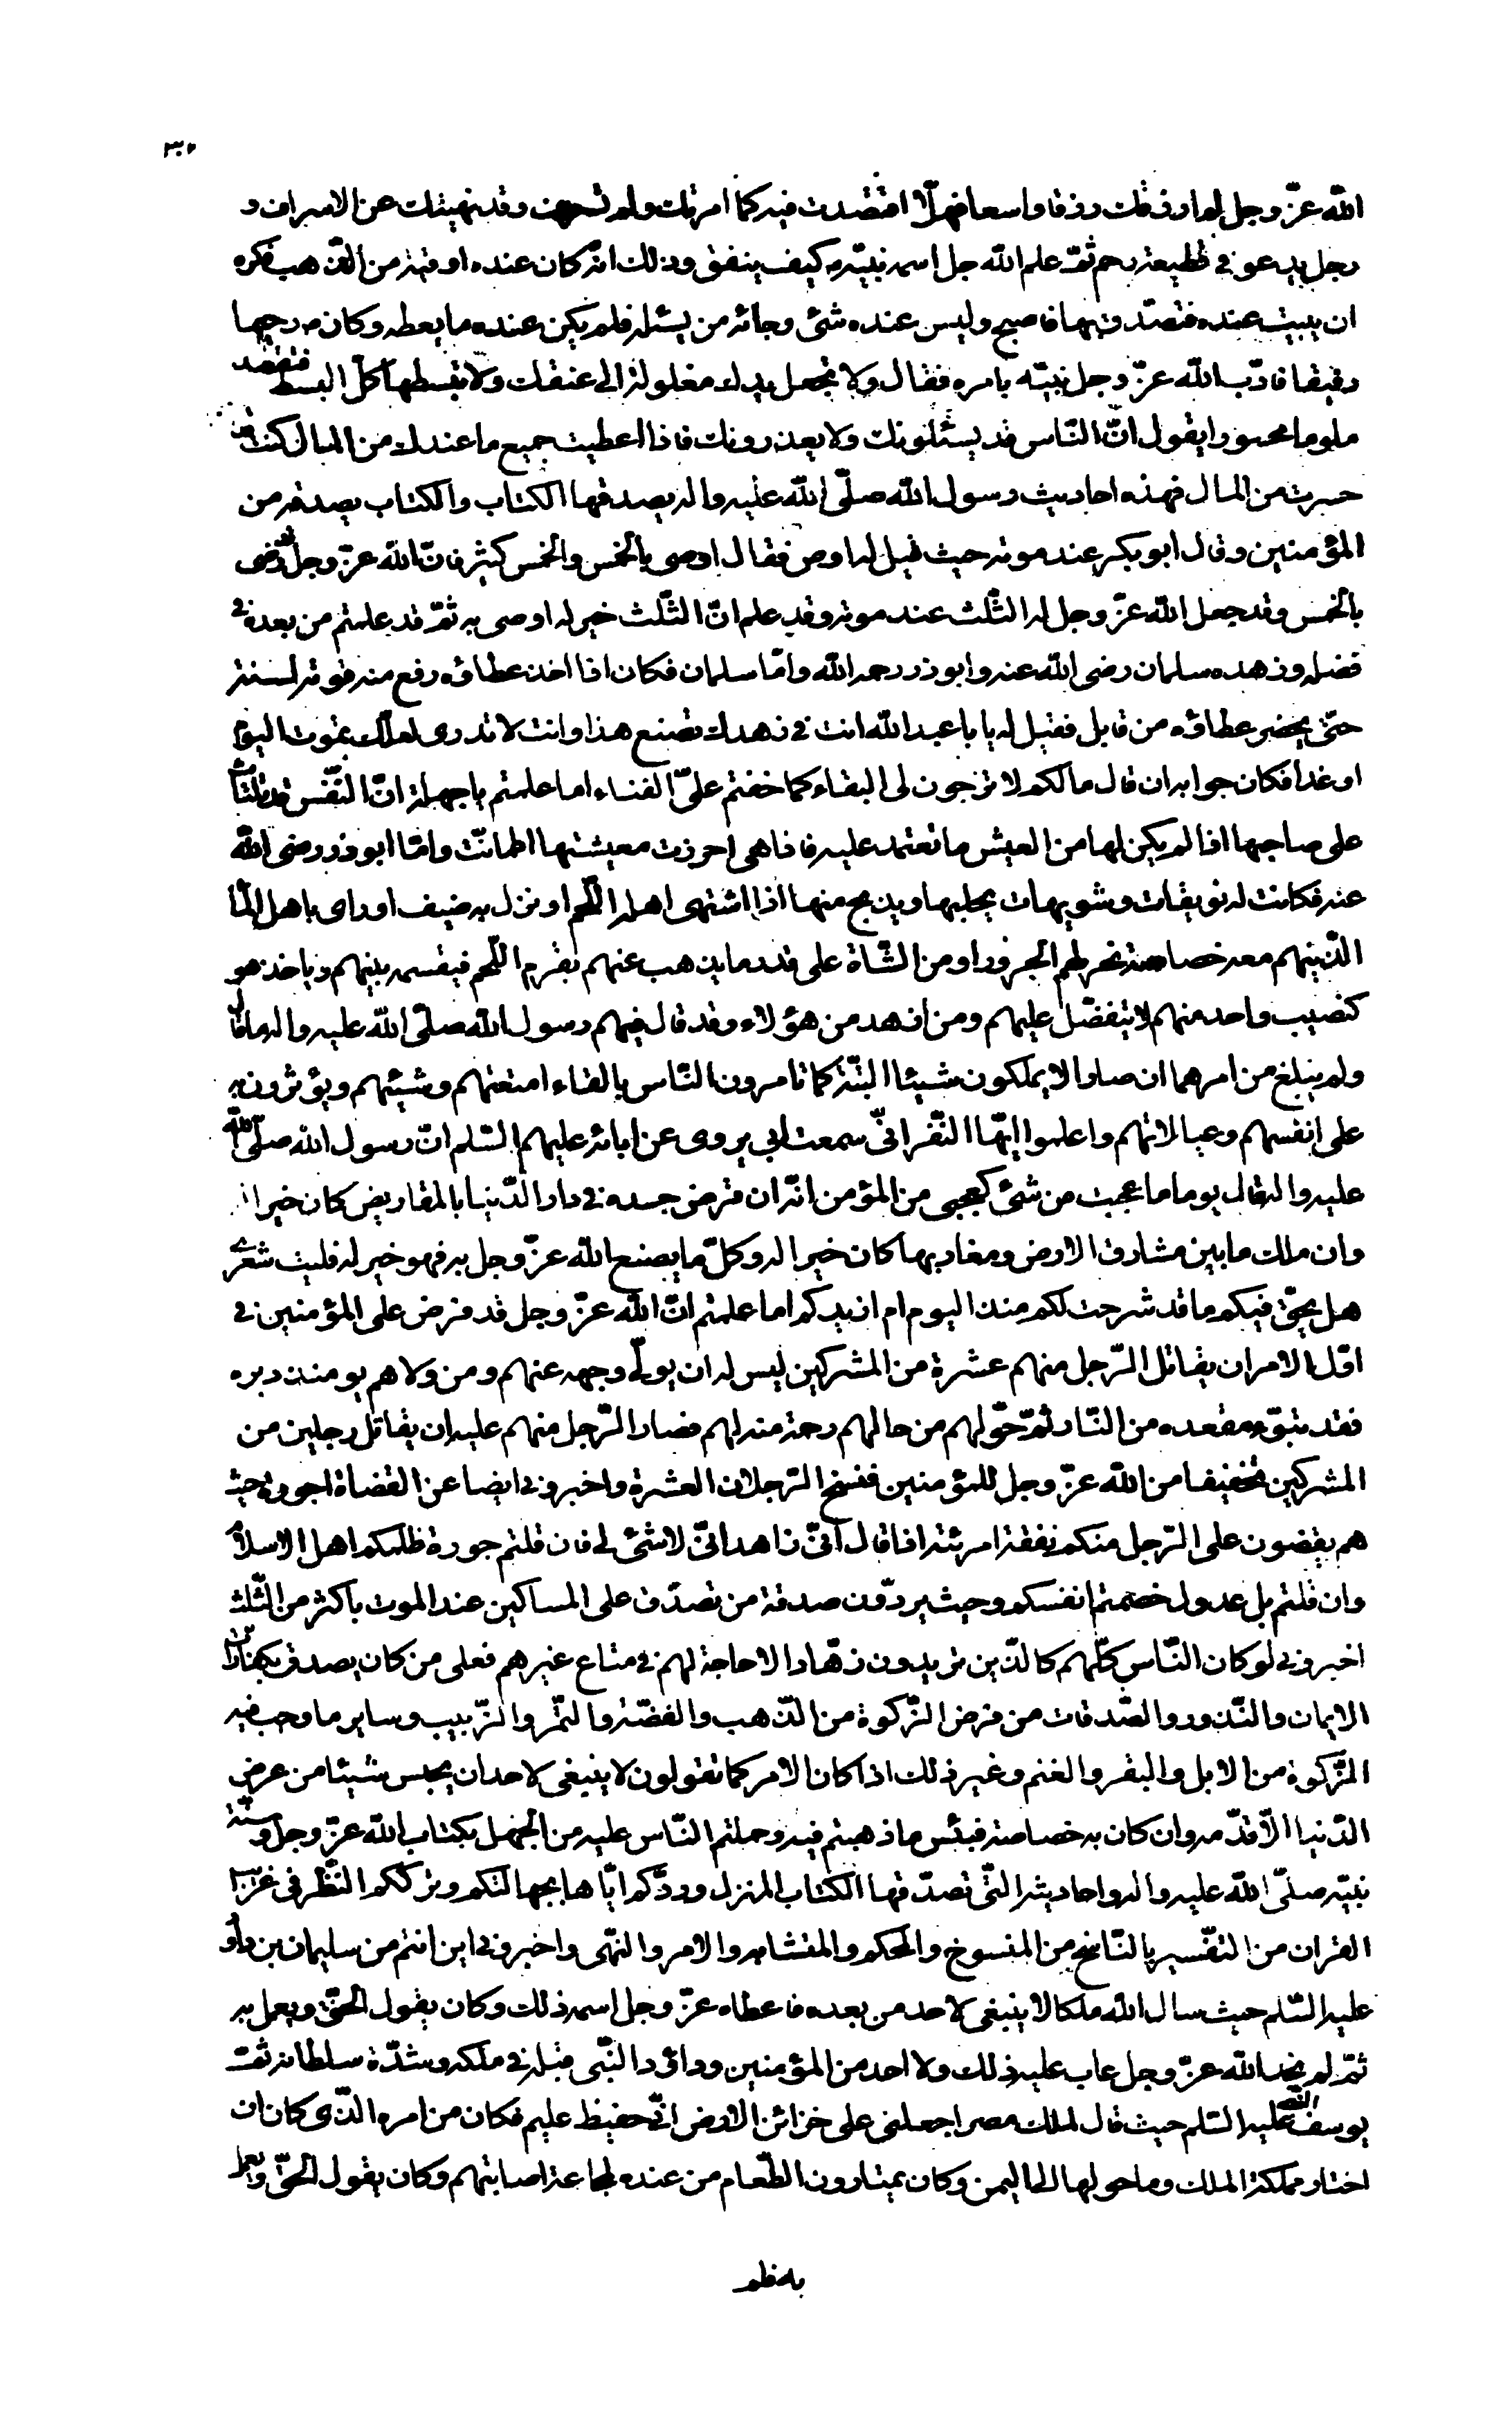 ٣٠
الله عزّ وجل الم ارزقك رزقا واسعا فهلّا اقتصدت فيه كما امرتك ولم تسرف وقد نهيتك عن الاسراف و
رجل يدعو في قطيعة رحم ثمّ علم الله جل اسمه نبيّه كيف ينفق وذلك انّه كان عنده اوقية من الذهب فكره
ان يبيت عنده فتصدّق بها فاصبح وليس عنده شئ وجائه من يسئله فلم يكن عنده ما يعطه وكان رحيما
رقيقا فادّب الله عزّ وجل نبيّه بامره فقال ولا تجعل يدك مغلولة الى عنقك ولا تبسطها كلّ البسط فتقعد
ملوما محسورا يقول انّ النّاس قد يسئلونك ولا يعذرونك فاذا اعطيت جميع ما عندك من المال كنت قد
حسرت من المال فهذه احاديث رسول الله صلّى الله عليه واله يصدقها الكتاب والكتاب يصدقه من
المؤمنين وقال ابو بكر عند موته حيث قيل له اوص فقال اوصى بالخمس والخمس كثير فانّ الله عزّ وجل قد رضى
بالخمس وقد جعل الله عزّ وجل له الثّلث عند موته وقد علم انّ الثّلث خير له اوصى به ثمّ قد علمتم من بعده في
فضله وزهده سلمان رضى الله عنه وابو ذر رحمه الله وامّا سلمان فكان اذا اخذ عطاؤه رفع منه قوته لسنته
حتّى يحضر عطاؤه من قابل فقيل له يا با عبد الله انت في زهدك تصنع هذا وانت لا تدرى لعلّك تموت اليوم
او غدا فكان جوابه ان قال ما لكم لا ترجون لى البقاء كما خفتم علىّ الفناء اما علمتم يا جهلة انّ النّفس قد تلتاث
على صاحبها اذا لم يكن لها من العيش ما تعتمد عليه فاذا هى احرزت معيشتها اطمانّت وامّا ابو ذر رضى الله
عنه فكانت له نويقات وشويهات يحلبها ويذبح منها اذا اشتهى اهله اللّحم او نزل به ضيف او راى باهل الماء
الّذينهم معه خصاصة نحر لهم الجزور او من الشّاة على قدر ما يذهب عنهم بقرم اللّحم فيقسمه بينهم وياخذ هو
كنصيب واحد منهم لا يتفضّل عليهم ومن ازهد من هؤلاء وقد قال فيهم رسول الله صلّى الله عليه واله ما قال
ولم يبلغ من امرهما ان صارا لا يملكون شيئا البتّة كما تامرون النّاس بالقاء امتعتهم وشيئهم ويؤثرون به
على انفسهم وعيالاتهم واعلموا ايّها النّفر انّى سمعت ابى يروى عن ابائه عليهم السّلم انّ رسول الله صلّى الله
عليه واله قال يوما ما عجبت من شئ كعجبى من المؤمن انّه ان قرض جسده في دار الدّنيا بالمقاريض كان خيرا له
وان ملك ما بين مشارق الارض ومغاربها كان خيرا له وكلّ ما يصنع الله عزّ وجل به فهو خير له فليت شعرى
هل يحقّ فيكم ما قد شرحت لكم منذ اليوم ام ازيدكم اما علمتم انّ الله عزّ وجل قد فرض على المؤمنين في
اوّل الامر ان يقاتل الرّجل منهم عشرة من المشركين ليس له ان يولّى وجهه عنهم ومن ولاهم يومئذ دبره
فقد تبوّء مقعده من النّار ثمّ حوّلهم من حالهم رحمة منه لهم فصار الرّجل منهم عليه ان يقاتل رجلين من
المشركين تخفيفا من الله عزّ وجل للمؤمنين فنسخ الرّجلان العشرة واخبروني ايضا عن القضاة اجورة حيث
هم يقضون على الرّجل منكم نفقة امرئته اذا قال انّى زاهد انّى لا شئ لى فان قلتم جورة ظلمكم اهل الاسلام
وان قلتم بل عدول خصمتم انفسكم وحيث يردّون صدقة من تصدّق على المساكين عند الموت باكثر من الثّلث
اخبروني لو كان النّاس كلّهم كالّذين تريدون زهّادا لا حاجة لهم في متاع غيرهم فعلى من كان يصدق بكفّارات
الايمان والنّذور والصّدقات من فرض الزّكوة من الذّهب والفضّة والتّمر والزّبيب وساير ما وجب فيه
الزّكوة من الابل والبقر والغنم وغير ذلك اذا كان الامر كما تقولون لا ينبغى لاحد ان يحبس شيئا من عرض
الدّنيا الّا قدّمه وان كان به خصاصة فبئس ما ذهبتم فيه وحملتم النّاس عليه من الجهل بكتاب الله عزّ وجل وسنّة
نبيّه صلّى الله عليه واله واحاديثه الّتى تصدّقها الكتاب المنزل وردّكم ايّاها بجهالتكم وترككم النّظر في غرايب
القران من التفّسير بالنّاسخ من المنسوخ والمحكم والمتشابه والامر والنّهى واخبروني اين انتم من سليمان بن داود
عليه السّلم حيث سال الله ملكا لا ينبغى لاحد من بعده فاعطاه عزّ وجل اسمه ذلك وكان يقول الحقّ ويعمل به
ثمّ لم نجد الله عزّ وجل عاب عليه ذلك ولا احد من المؤمنين وداؤد النّبى قبله في ملكه وشدّة سلطانه ثمّ
يوسف النّبى عليه السّلم حيث قال لملك مصر اجعلنى على خزائن الارض انّى حفيظ عليم فكان من امره الّذى كان ان
اختار مملكة الملك وما حولها الى اليمن وكان يمتارون الطّعام من عنده لمجاعة اصابتهم وكان يقول الحقّ ويعمل
به فلم